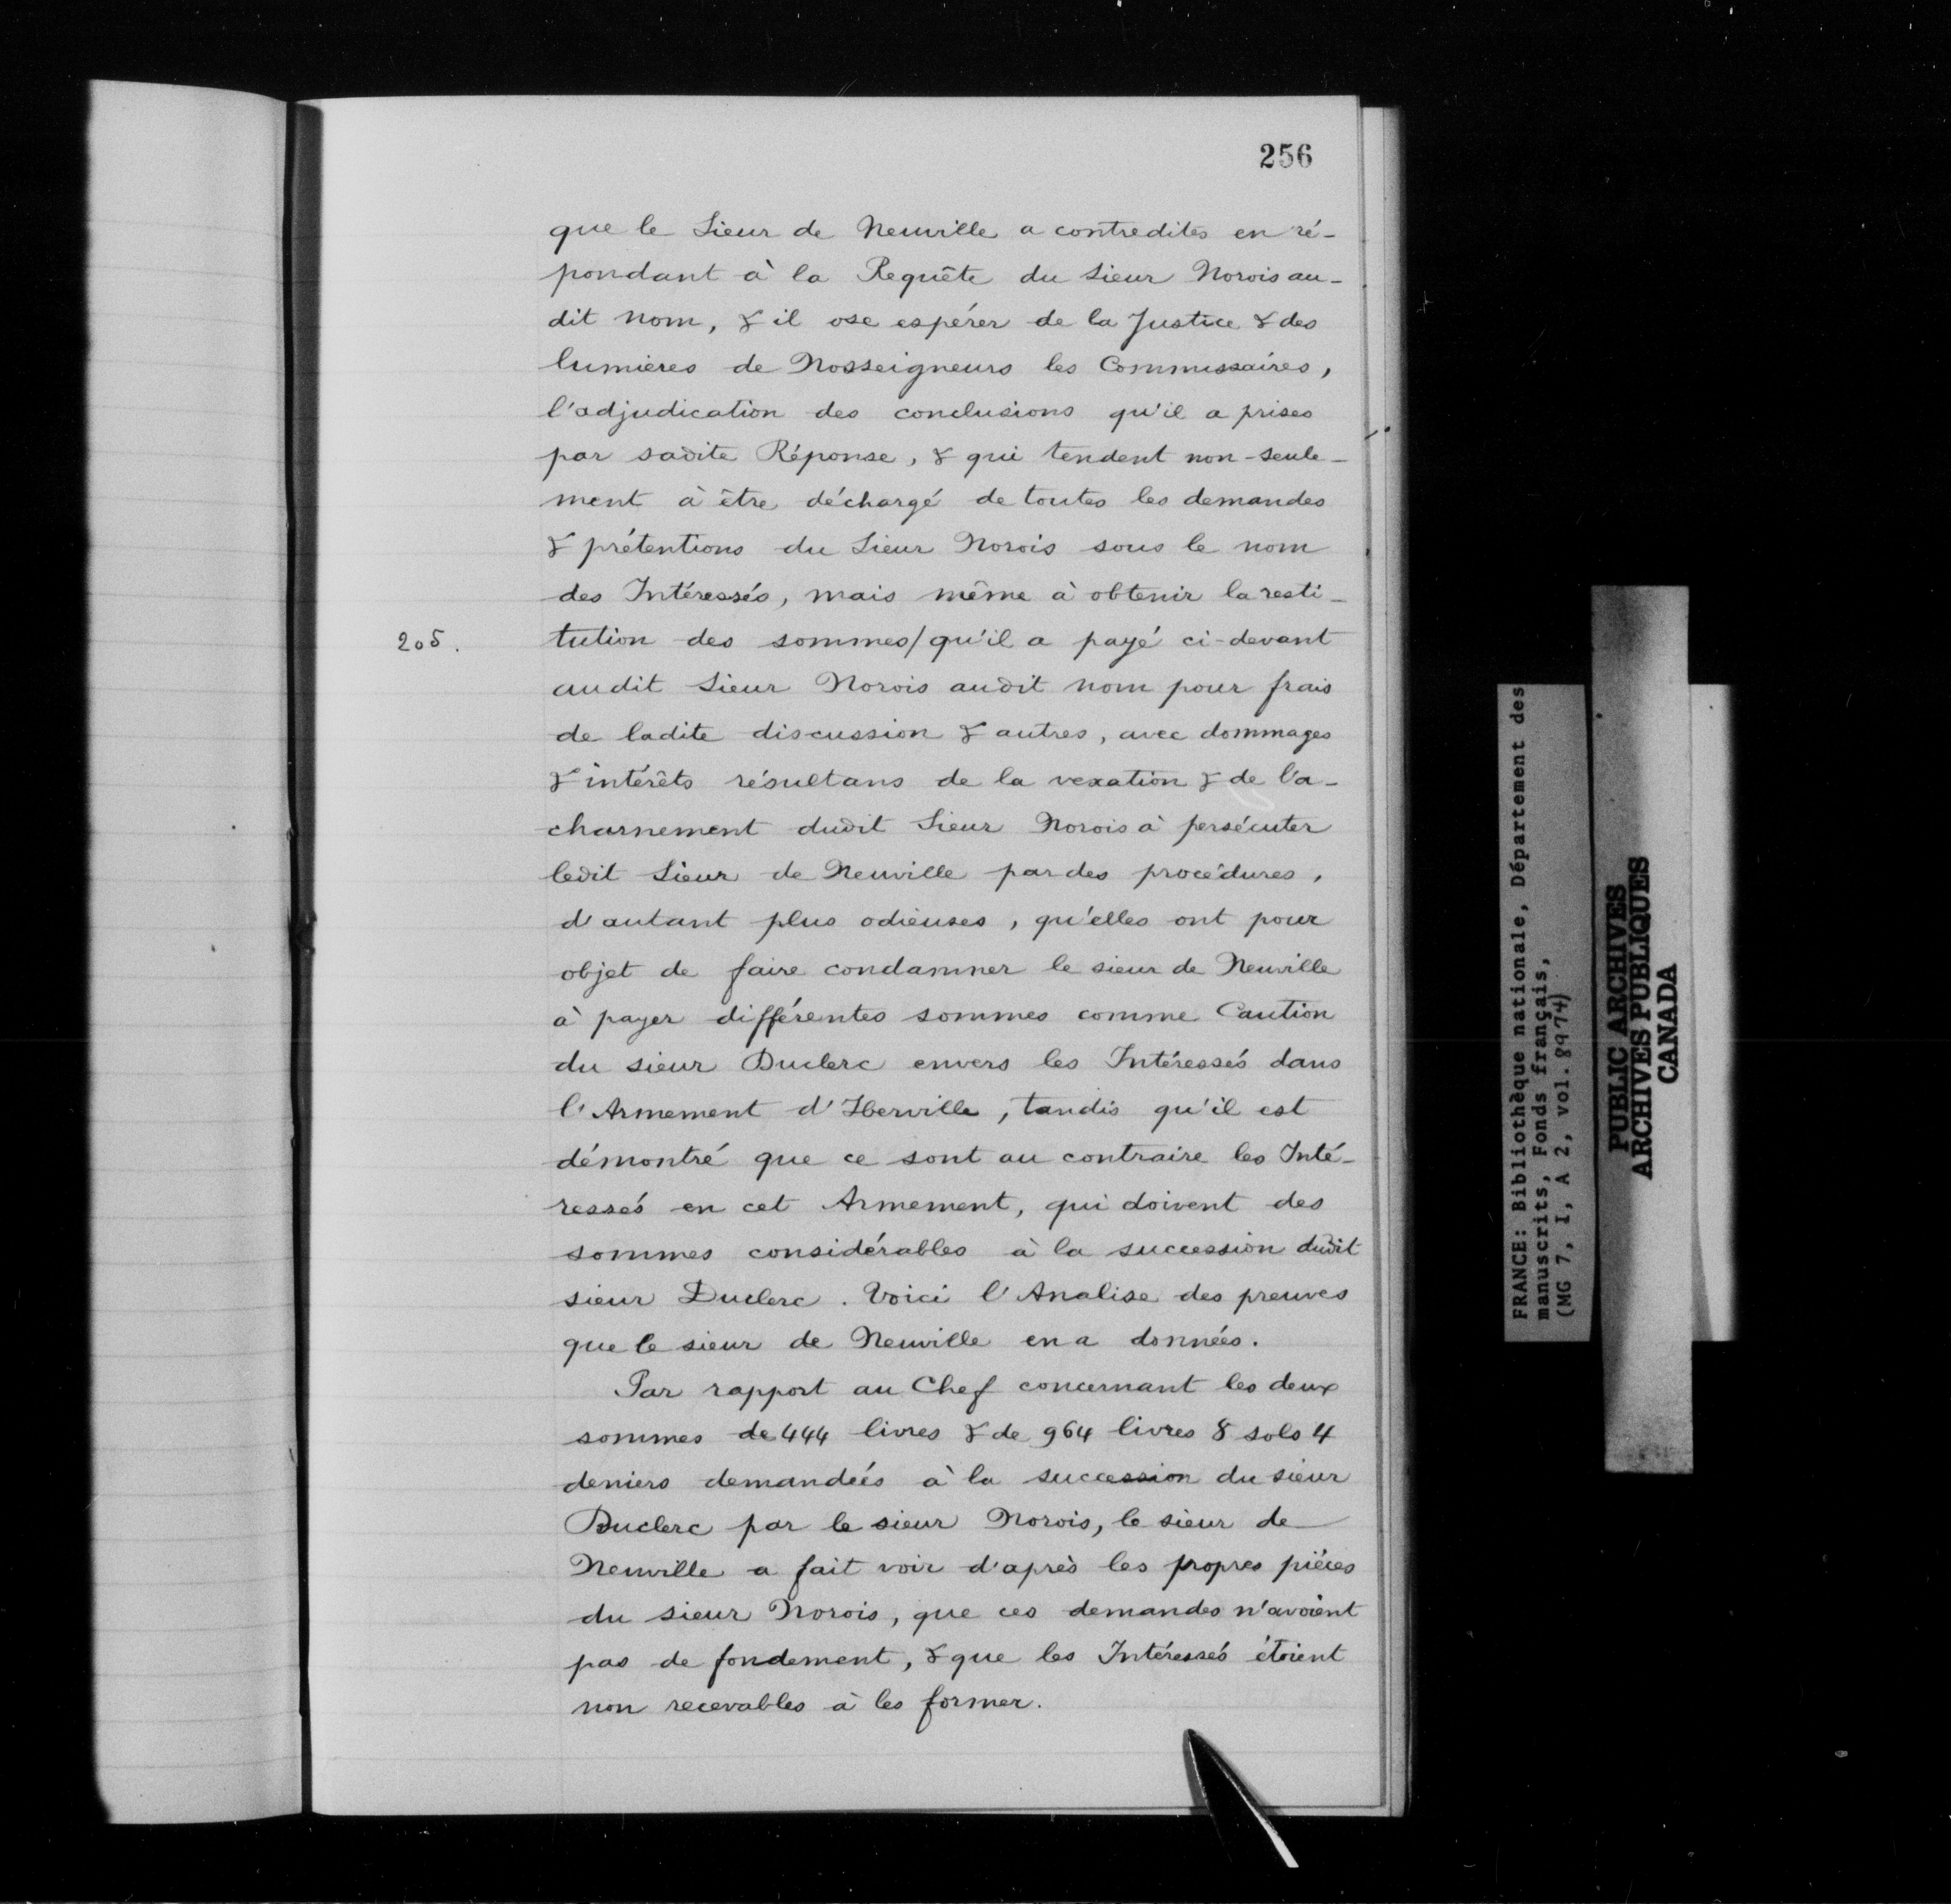 256
que le Sieur de Neuville a contredites en ré-
pondant à la Requête du Sieur Norois au-
dit nom, & il ose espérer de la Justice & des
lumières de Nosseigneurs les Commissaires,
l'adjudication des conclusions qu'il a prises
par sadite Réponse, & qui tendent non-seule-
ment à être déchargé de toutes les demandes
& prétentions du Sieur Norois sous le nom
des Intéressés, mais même à obtenir la resti-
205. tution des sommes/qu'il a payé ci-devant
audit Sieur Norois audit nom pour frais
de ladite discussion & autres, avec dommages
& intérêts résultans de la vexation & de l'a-
charnement dudit Sieur Norois à persécuter
ledit Sieur de Neuville par des procédures,
d'autant plus odieuses, qu'elles ont pour
objet de faire condamner le sieur de Neuville
à payer différentes sommes comme Caution
du sieur Duclerc envers les Intéressés dans
l'Armement d'Iberville, tandis qu'il est
démontré que ce sont au contraire les Inté-
ressés en cet Armement, qui doivent des
sommes considérables à la succession dudit
sieur Duclerc. Voici l'Analise des preuves
que le sieur de Neuville en a données.
Par rapport au Chef concernant les deux
sommes de 444 livres & de 964 livres 8 sols 4
deniers demandées à la succession du sieur
Duclerc par le sieur Norois, le sieur de
Neuville a fait voir d'après les propres pièces
du sieur Norois, que ces demandes n'avoient
pas de fondement, & que les Intéressés étoient
non recevables à les former.
FRANCE: Bibliothèque nationale, Département des
manuscrits, Fonds français,
(MG 7, I, A 2, vol. 8974)
PUBLIC ARCHIVES
ARCHIVES PUBLIQUES
CANADA